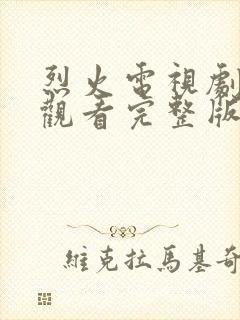 烈火電視劇
觀看完整版
維克拉馬基奇